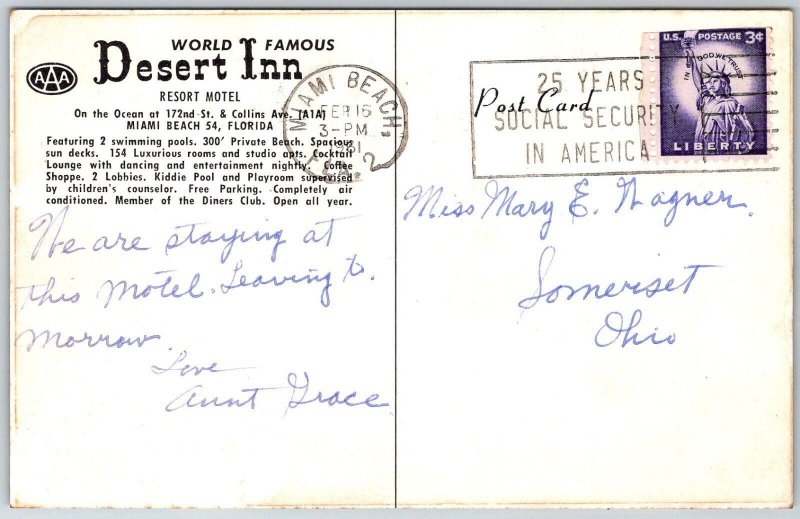 WORLD FAMOUS
Desert Inn
AAA
RESORT MOTEL
On the Ocean at 172nd St. & Collins Ave. (A1A)
MIAMI BEACH 54, FLORIDA
Featuring 2 swimming pools. 300' Private Beach. Spacious
sun decks. 154 Luxurious rooms and studio apts. Cocktail
Lounge with dancing and entertainment nightly. Coffee
Shoppe. 2 Lobbies. Kiddie Pool and Playroom supervised
by children's counselor. Free Parking. Completely air
conditioned. Member of the Diners Club. Open all year.
We are staying at
this Motel. Leaving to
morrow.
Love
Aunt Grace
MIAMI BEACH,
FEB 16
3-PM
FLA. 2
Post Card
25 YEARS
SOCIAL SECURITY
IN AMERICA
U.S. POSTAGE 3¢
IN GOD WE TRUST
LIBERTY
Miss Mary E. Wagner.
Somerset
Ohio